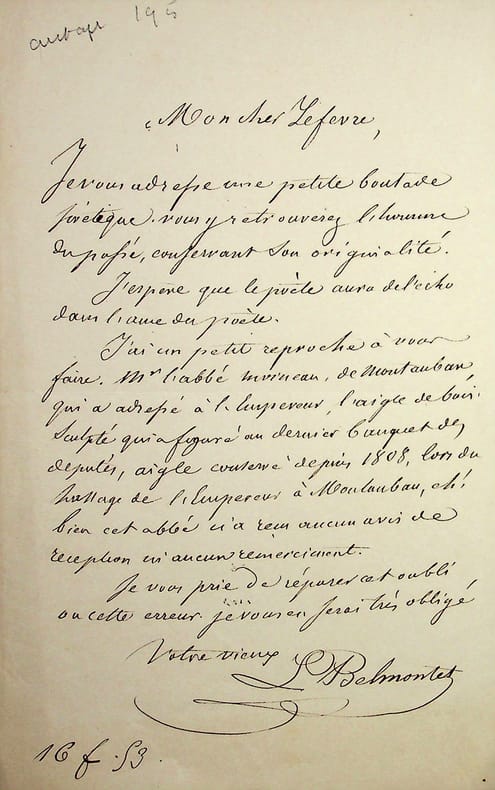 195
Mon cher Lefevre,
Je vous adresse une petite boutade
poëtique. vous y retrouverez l'homme
du passé, conservant son originialité.
J'espere que le poëte aura de l'echo
dans l'ame du poëte.
J'ai un petit reproche à vous
faire. Mr l'abbé de Montauban,
qui a adressé à l'Empereur, l'aigle de bois
sculpté qui a figuré au dernier banquet des
deputés, aigle conservé depuis 1808, lors du
passage de l'Empereur à Montauban, eh!
bien cet abbé n'a reçu aucun avis de
reception ni aucun remerciment.
Je vous prie de réparer cet oubli
ou cette erreur. je vous en serai très obligé
Votre vieux
L Belmontet
16 f. 53.